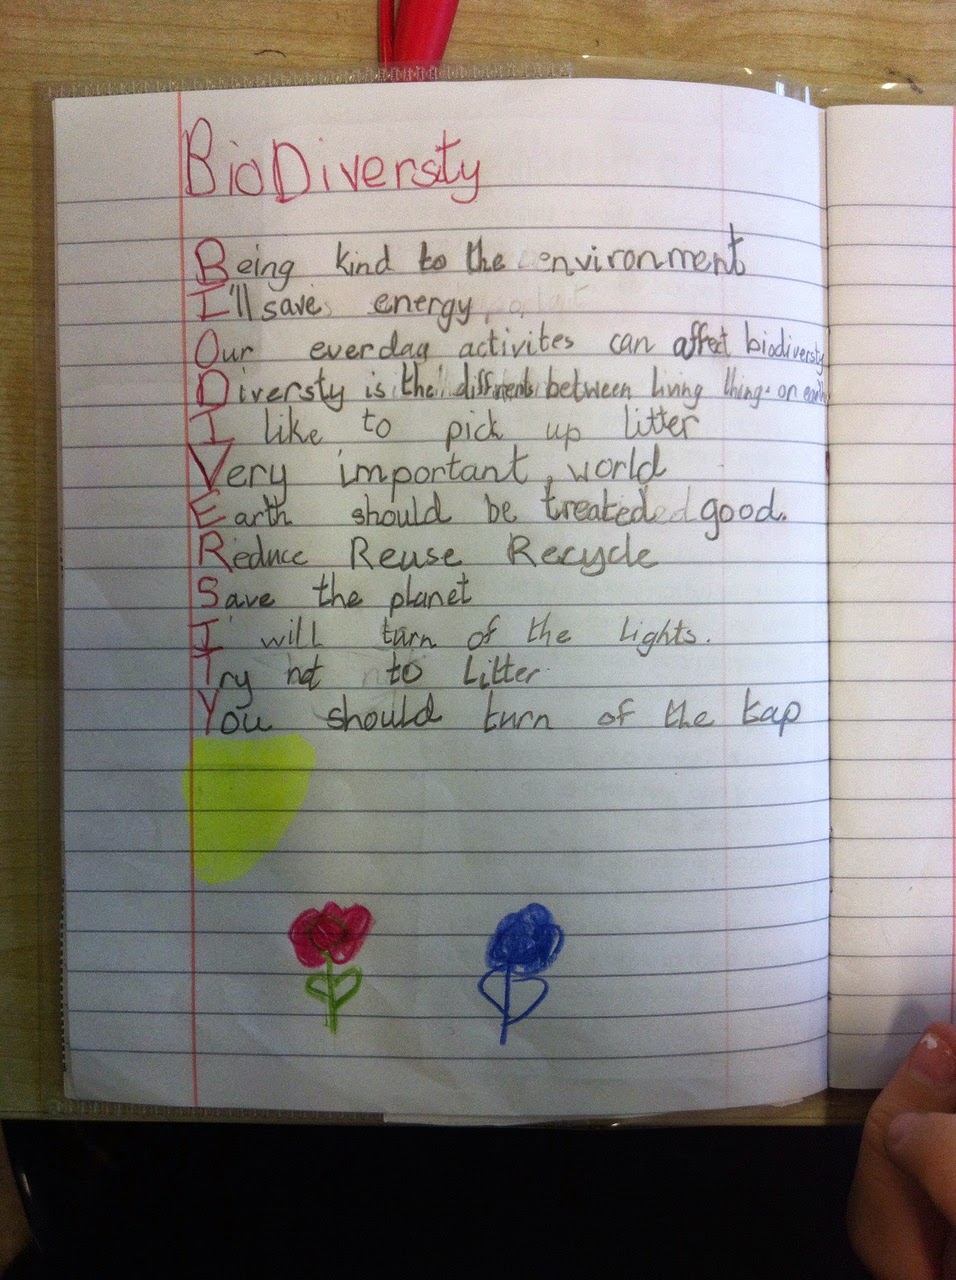 BioDiversty
Being kind to the environment
I'll save energy
Our everday activites can affect biodiversty
Diversty is the between living things on earth
I like to pick up litter
Very important world
Earth should be treated good.
Reduce Reuse Recycle
Save the planet
I will turn of the lights.
Try not to Litter
You should turn of the tap